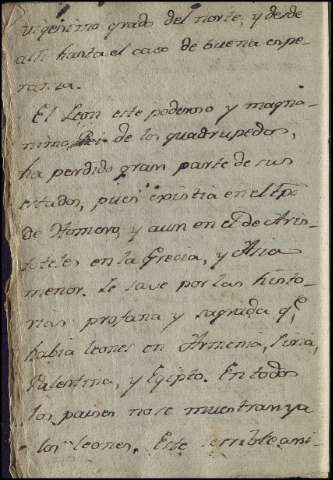 vigesimo grado del norte, y desde
alli hasta el cavo de buena espe-
ranza.
El Leon este poderoso y magna-
nimo Rei de los quadrupedos,
ha perdido gran parte de sus
estados, pues existia en el tpõ
de Homero, y aun en el de Aris-
toteles en la Grecia, y Asia
menor. Se save por las histo-
rias profana y sagrada qe,
habia leones en Armenia, Siria,
Palestina, y Egipto. En todos
los paises no se muestran ya
los leones. Este terrible ani-